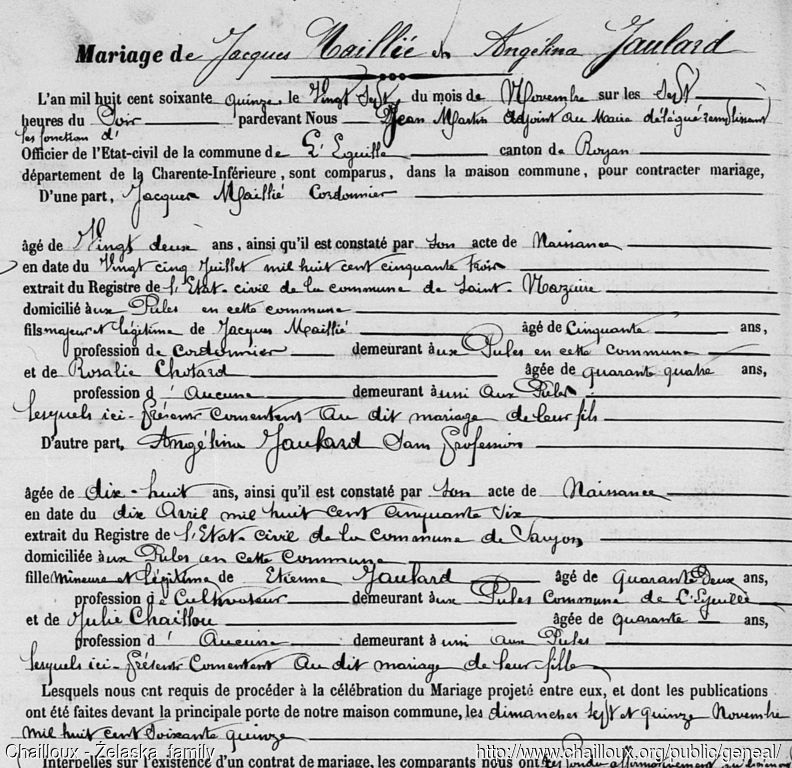 Mariage de Jacques Maillié et Angélina Jaulard
L'an mil huit cent soixante quinze le Vingt Sept, du mois de Novembre sur les Sept
heures du Soir pardevant Nous Jean Martin Adjoint au Maire délégué remplissant
les fonction d'
Officier de l'Etat-civil de la commune de L'Eguille canton de Royan
département de la Charente-Inférieure, sont comparus, dans la maison commune, pour contracter mariage,
D'une part, Jacques Maillié Cordonnier
âgé de Vingt deux ans, ainsi qu'il est constaté par son acte de Naissance
en date du Vingt cinq Juillet mil huit cent cinquante trois
extrait du Registre de l'Etat-civil de la commune de Saint-Nazaire
domicilié aux Pules en cette commune
fils majeur et légitime de Jacques Maillié âgé de Cinquante ans,
profession de Cordonnier demeurant aux Pules en cette commune
et de Rosalie Chotard âgée de quarante quatre ans,
profession d' Aucune demeurant aussi aux Pules
lesquels ici-présents Consentent Au dit mariage de leur fils
D'autre part, Angélina Jaulard Sans profession
âgée de dix-huit ans, ainsi qu'il est constaté par son acte de Naissance
en date du dix Avril mil huit Cent Cinquante Six
extrait du Registre de l'Etat-civil de la Commune de Saujon
domiciliée aux Pules en cette Commune
fille mineure et légitime de Etienne Jaulard âgé de quarante deux ans,
profession de Cultivateur demeurant aux Pules Commune de L'Eguille
et de Julie Chaillou âgée de quarante ans,
profession d' Aucune demeurant aussi aux Pules
lesquels ici-présents Consentent Au dit mariage de leur fille
Lesquels nous ont requis de procéder à la célébration du Mariage projeté entre eux, et dont les publications
ont été faites devant la principale porte de notre maison commune, les dimanches Sept et quinze Novembre
mil huit cent Soixante quinze
Chailloux - Želaska family http://www.chailloux.org/public/geneal/
Interpellés sur l'existence d'un contrat de mariage, les comparants nous ont